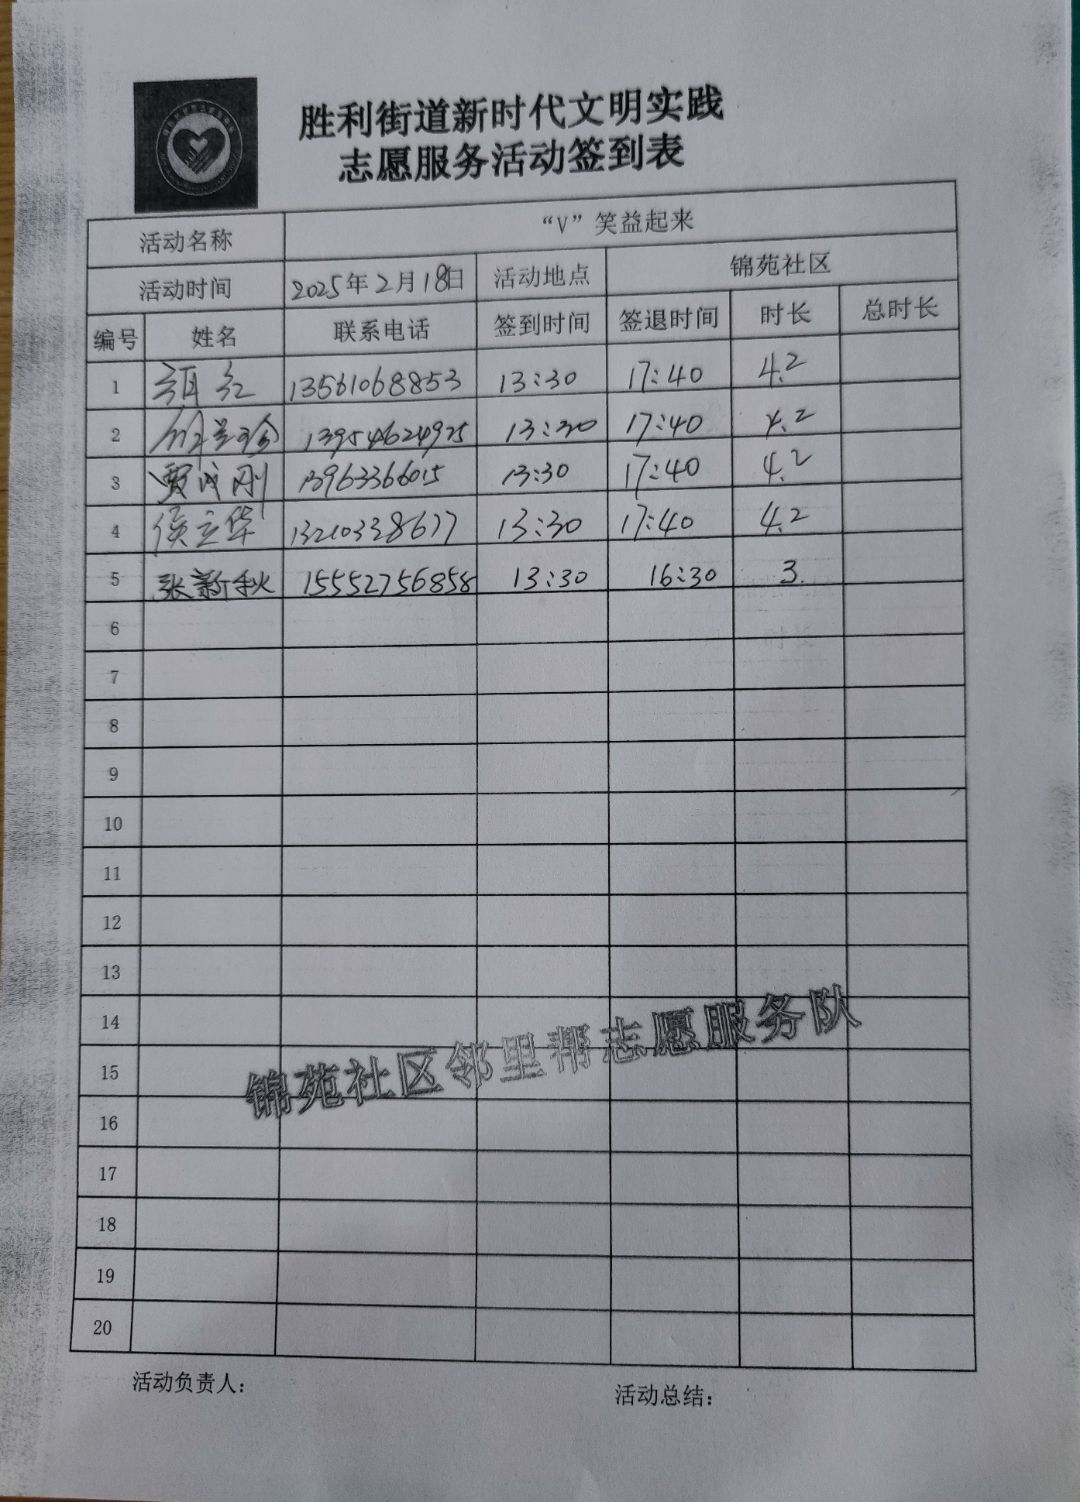 胜利街道新时代文明实践
志愿服务活动签到表
活动名称 “V”笑益起来
活动时间 2025年2月18日 活动地点 锦苑社区
编号 姓名 联系电话 签到时间 签退时间 时长 总时长
1 红 13561068853 13:30 17:40 4.2
2 13954624925 13:30 17:40 4.2
3 贾成刚 13963366015 13:30 17:40 4.2
4 侯立华 13210338677 13:30 17:40 4.2
5 张新秋 15552756858 13:30 16:30 3.
6
7
8
9
10
11
12
13
14
15
16
17
18
19
20
锦苑社区邻里帮志愿服务队
活动负责人: 活动总结: